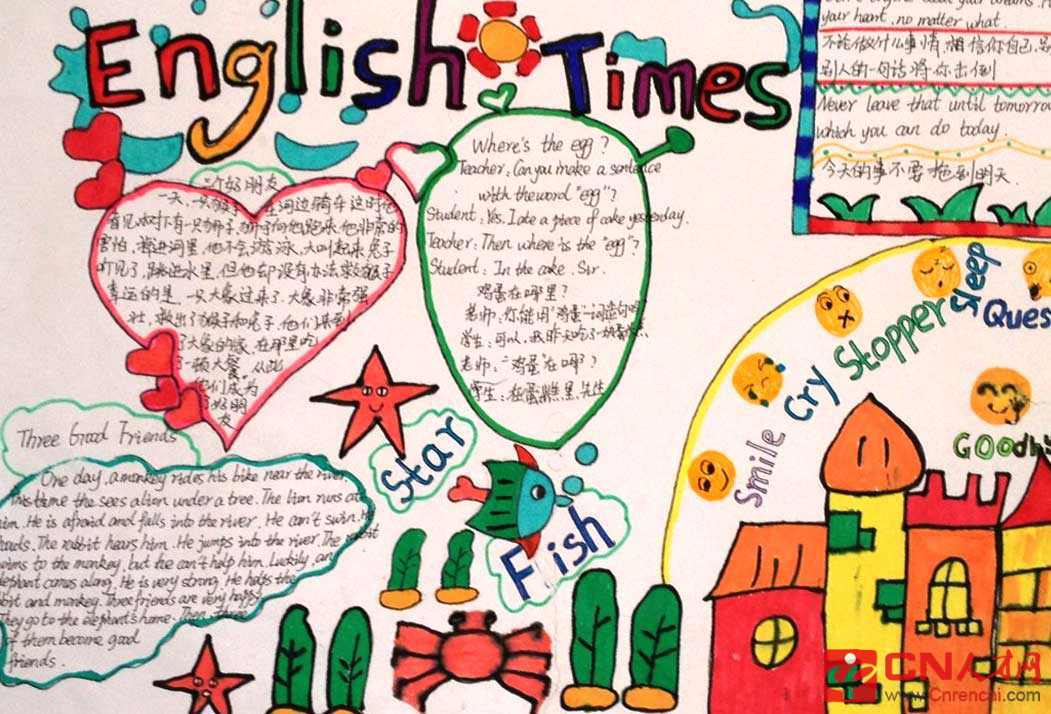 English Times
your heart, no matter what.
不论做什么事情,相信你自己,
别人的一句话将你击倒
Never leave that until tomorrow
which you can do today.
今天的事不要拖到明天.
Where's the egg?
Teacher: Can you make a sentence
with the word "egg"?
Student: Yes. I ate a piece of cake yesterday.
Teacher: Then where is the "egg"?
Student: In the cake. Sir.
鸡蛋在哪里?
老师:你能用"鸡蛋"一词造句吗
学生:可以,我昨天吃了一块蛋糕
老师:"鸡蛋"在哪?
学生:在蛋糕里,先生
个好朋友
一天,一只猴子在河边骑车这时他
看见树下有一只狮子,狮子向他跑来他非常的
害怕,掉进河里,他不会游泳,大叫起来兔子
听见了,跳进水里,但他却没有办法救猴子
幸运的是,一只大象过来了.大象非常强
壮,救出了猴子和兔子,他们来到
了大象的家,在那里吃
一顿大餐,从此
他们成为
好朋
友
Three Good Friends
One day, a monkey rides his bike near the river.
This time the sees a lion under a tree. The lion runs at
him. He is afraid and falls into the river. He can't swim. He
The rabbit hears him. He jumps into the river. The rabbit
swims to the monkey, but he can't help him. Luckily, an
elephant comes along. He is very strong. He helps the
and monkey. Three friends are very happy
They go to the elephant's home.
of them become good
friends.
Star
Fish
Smile
Cry
Stopper
Sleep
Ques
Goodhi
CN人才
www.Cnrencai.com